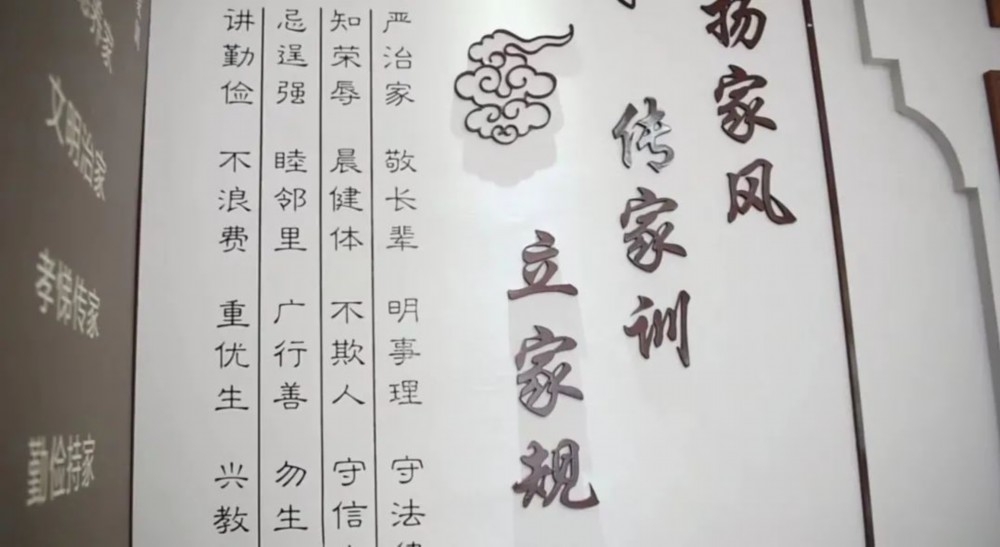 扬家风
传家训
立家规
严治家 敬长辈 明事理 守法
知荣辱 晨健体 不欺人 守信
忌逞强 睦邻里 广行善 勿生
讲勤俭 不浪费 重优生 兴教
文明治家
孝悌传家
勤俭持家